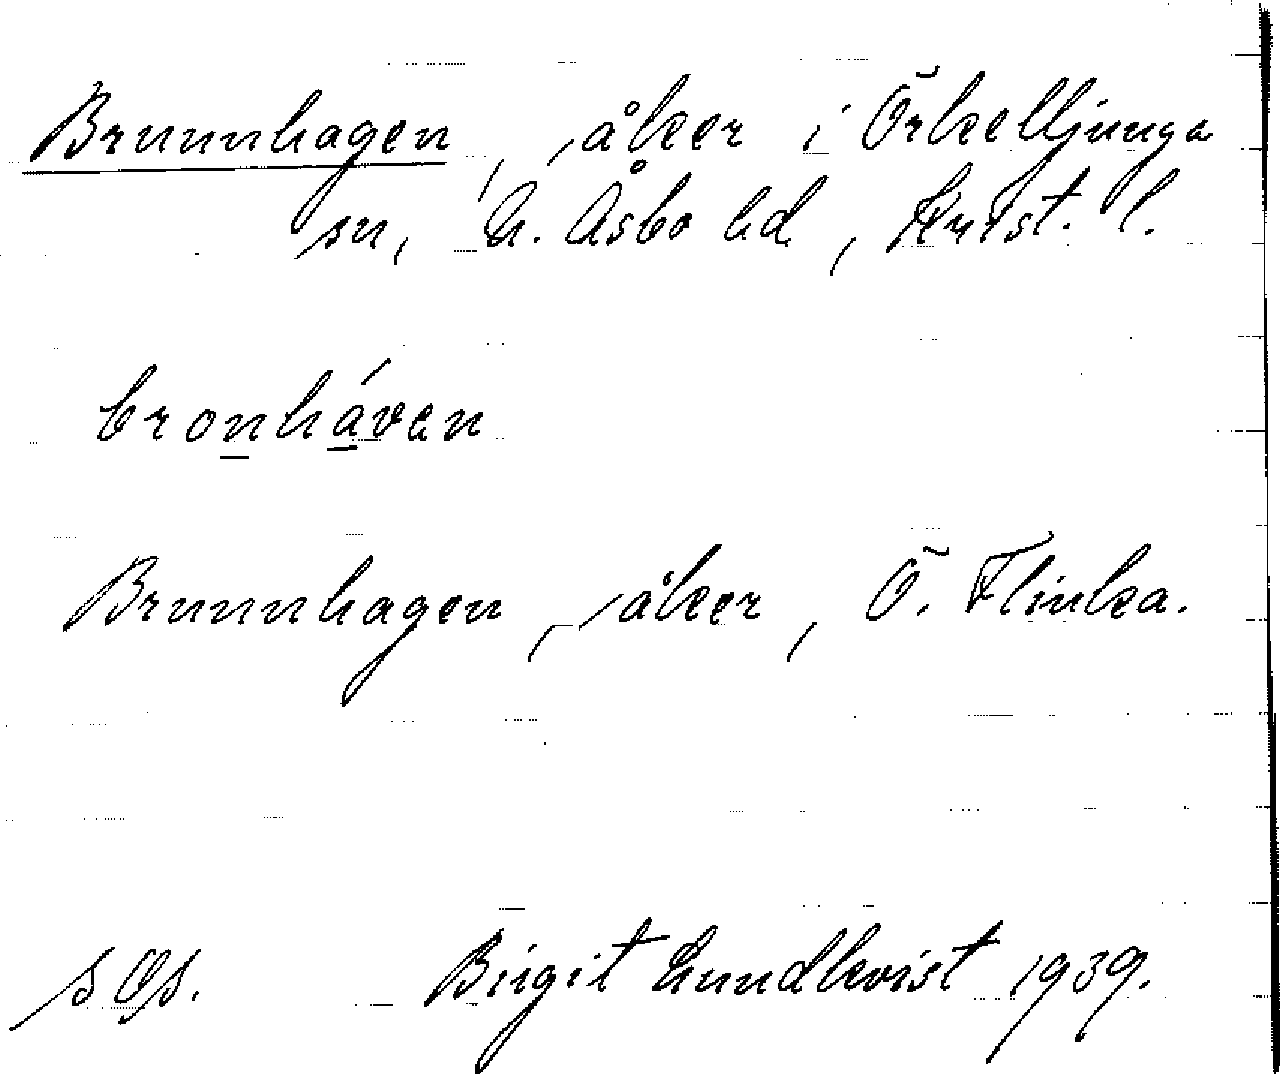 Brunnhagen, åker i Örkelljunga
sn, N. Åsbo hd, Krist. l.
bronháven
Brunnhagen, åker, Ö. Flinka.
Birgit Lundkvist 1939.